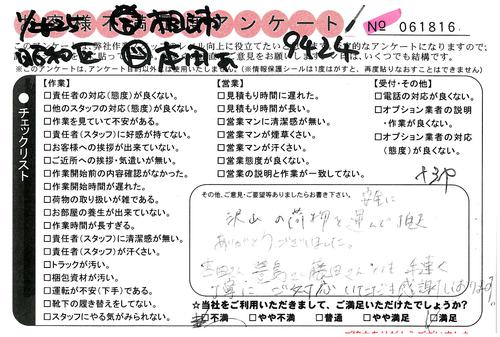 お客様不満足度アンケート
No 061816
このアンケートは、弊社作
りますので、
9924
いくつでも結構です。
※このアンケートは、アンケート目的以外では使用いたしません。（※情報保護シールは1度はがすと、再度貼りなおすことはできません）
●チェックリスト
【作業】
□責任者の対応（態度）が良くない。
□他のスタッフの対応（態度）が良くない。
□作業を見ていて不安がある。
□責任者（スタッフ）に好感が持てない。
□お客様への挨拶が出来ていない。
□ご近所への挨拶・気遣いが無い。
□作業開始前の内容確認がなかった。
□作業開始時間が遅れた。
□荷物の取り扱いが雑である。
□お部屋の養生が出来ていない。
□作業時間が長すぎる。
□責任者（スタッフ）に清潔感が無い。
□責任者（スタッフ）が汗くさい。
□トラックが汚い。
□梱包資材が汚い。
□運転が不安（下手）である。
□靴下の履き替えをしてない。
□スタッフにやる気がみられない。
【営業】
□見積もり時間に遅れた。
□見積もり時間が長い。
□営業マンに清潔感が無い。
□営業マンが煙草くさい。
□営業マンが汗くさい。
□営業態度が良くない。
□営業の説明と作業が一致してない。
【受付・その他】
□電話の対応が良くない。
□オプション業者の説明
・作業が良くない。
□オプション業者の対応
（態度）が良くない。
その他、ご意見・ご要望等ありましたらお書き下さい。
安全に
沢山の荷物を運んで頂き
ありがとうございました。
吉田さん
さん 藤田さん
手速く
丁寧にご対応いただき感謝しております。
☆当社をご利用いただきまして、ご満足いただけたでしょうか？
□不満 □やや不満 □普通 □やや満足 □満足